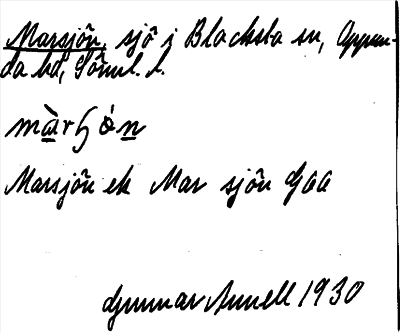 Marsjön, sjö i Blacksta sn, Oppun-
da hd, Söml. l.
màrɧón
Marsjön ek Mar sjön GAA
Gunnar Arnell 1930